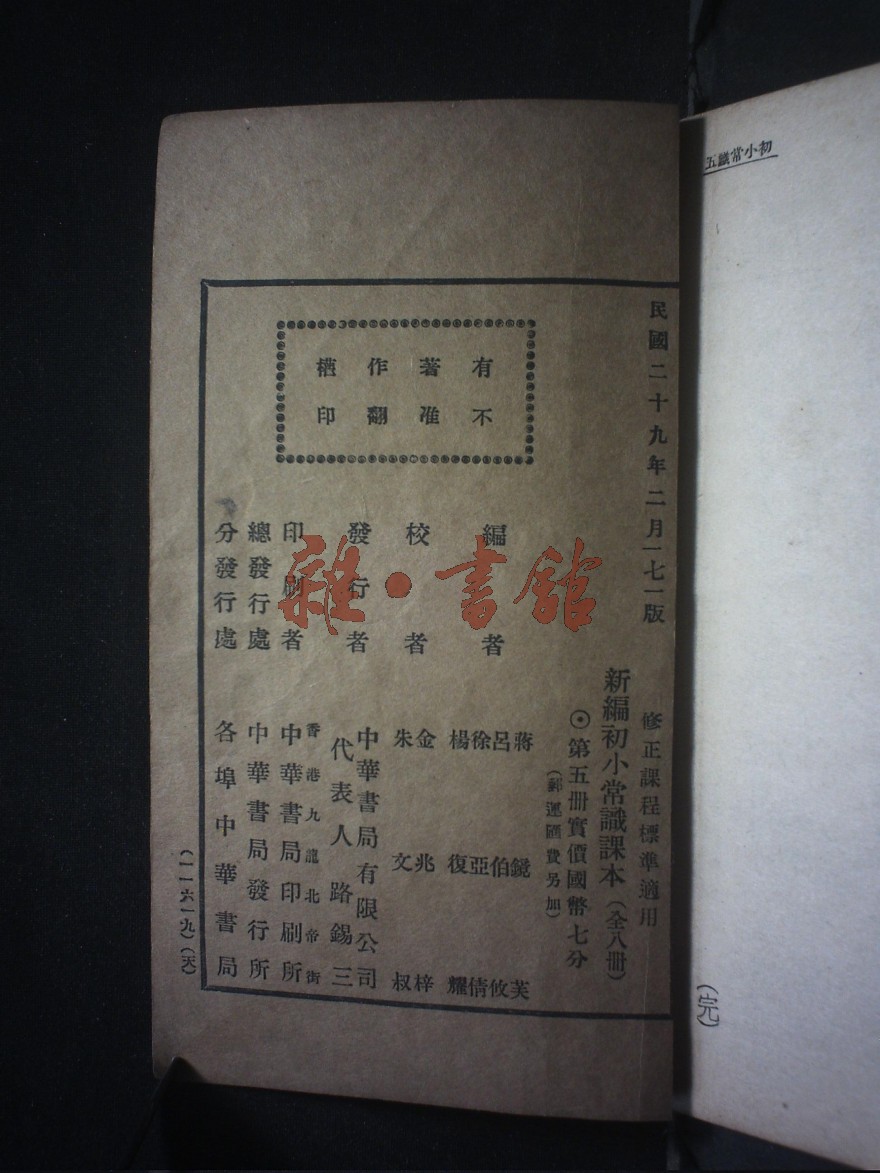 初小常識五
(完)
民國二十九年二月一七一版
修正課程標準適用
新編初小常識課本(全八冊)
⊙第五冊實價國幣七分
(郵運匯費另加)
有著作權
不准翻印
編者
蔣鏡芙
呂伯攸
徐亞倩
楊復耀
校者
金兆梓
朱文叔
發行者
中華書局有限公司
代表人路錫三
印刷者
香港九龍北帝街
中華書局印刷所
總發行處
中華書局發行所
分發行處
各埠中華書局
(一一六一九)(天)
雜·書館